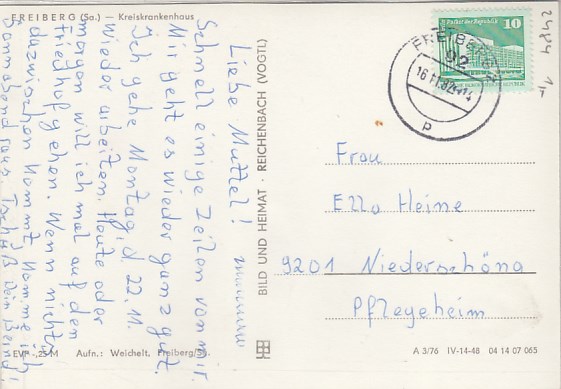 FREIBERG (Sa.) — Kreiskrankenhaus
Liebe Muttel!
Schnell einige Zeilen von mir.
Mir geht es wieder ganz gut.
Ich gehe Montag, d. 22. 11.
wieder arbeiten. Heute oder
morgen will ich mal auf den
Friedhof gehen. Wenn nichts
dazwischen kommt komme ich
Sonnabend raus. Tschüß Dein
EVP -,25 M Aufn.: Weichelt, Freiberg/Sa.
BILD UND HEIMAT · REICHENBACH (VOGTL)
Palast der Republik 10
FREIBERG
92
16.11.82-14
p
2484
1,-
Frau
Ella Heine
9201 Niederschöna
Pflegeheim
A 3/76 IV-14-48 04 14 07 065